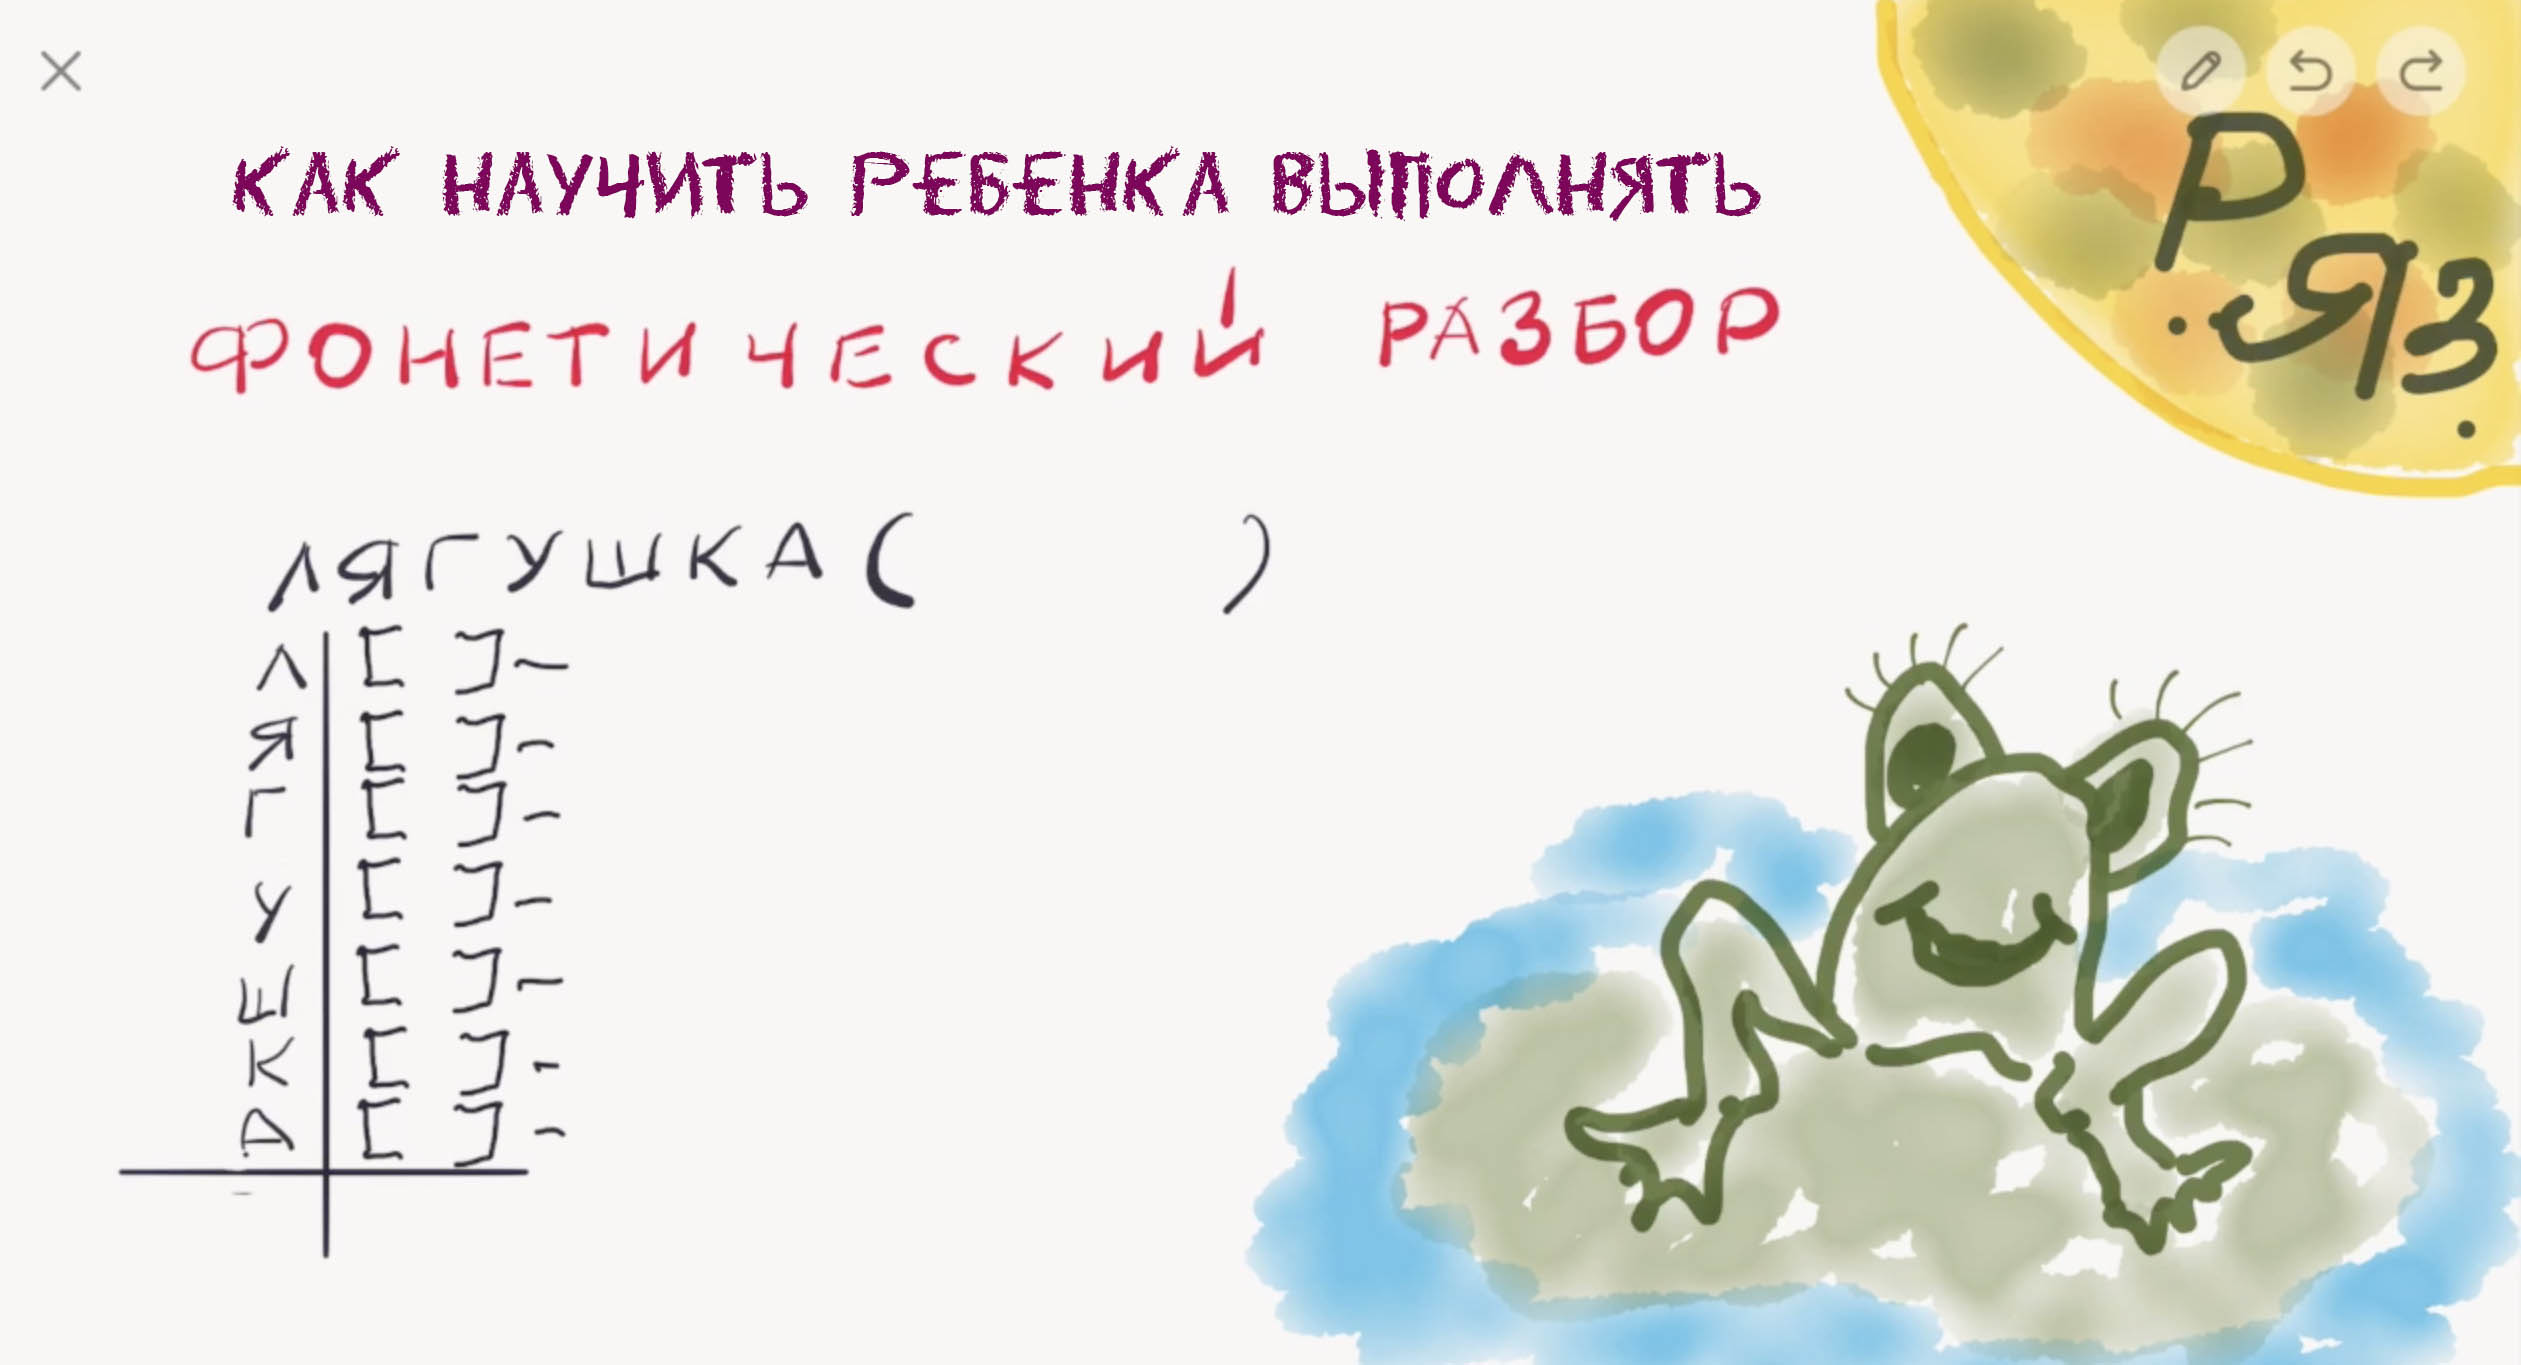 КАК НАУЧИТЬ РЕБЕНКА ВЫПОЛНЯТЬ
ФОНЕТИЧЕСКИЙ РАЗБОР
Р.
ЯЗ.
ЛЯГУШКА ( )
Л [ ] –
Я [ ] –
Г [ ] –
У [ ] –
Ш [ ] –
К [ ] –
А [ ] –